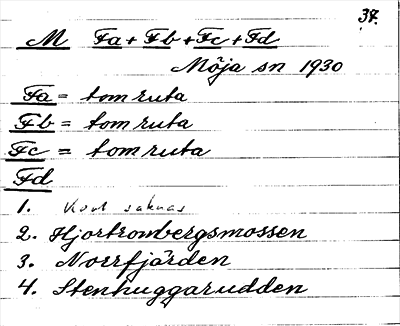 37.
M Fa + Fb + Fc + Fd
Möja sn 1930
Fa = tom ruta
Fb = tom ruta
Fc = tom ruta
Fd
1. Kort saknas
2. Hjortronbergsmossen
3. Norrfjärden
4. Stenhuggarudden